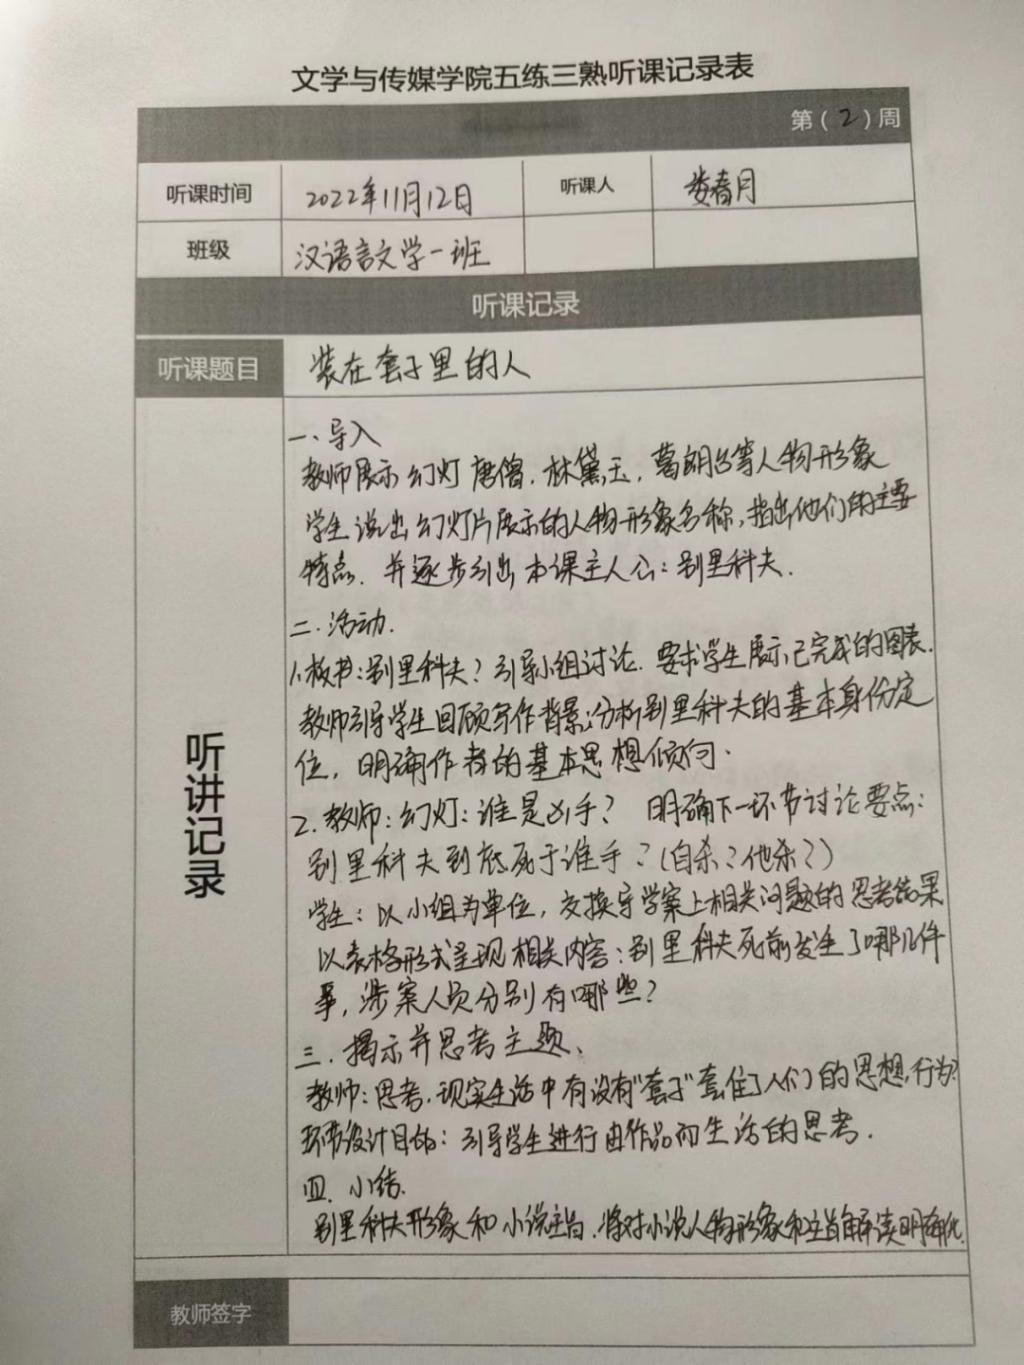 文学与传媒学院五练三熟听课记录表
第(2)周
听课时间 2022年11月12日 听课人 娄春月
班级 汉语言文学一班
听课记录
听课题目 装在套子里的人
听讲记录
一、导入
教师展示幻灯唐僧、林黛玉、葛朗台等人物形象
学生说出幻灯片展示的人物形象名称,指出他们的主要
特点.并逐步引出本课主人公:别里科夫.
二.活动.
1.板书:别里科夫?引导小组讨论.要求学生展示已完成的图表.
教师引导学生回顾写作背景;分析别里科夫的基本身份定
位,明确作者的基本思想倾向.
2.教师:幻灯:谁是凶手? 明确下一环节讨论要点:
别里科夫到底死于谁手?(自杀?他杀?)
学生:以小组为单位,交换导学案上相关问题的思考结果
以表格形式呈现相关内容:别里科夫死前发生了哪几件
事,涉案人员分别有哪些?
三.揭示并思考主题、
教师:思考.现实生活中有没有"套子"套住了人们的思想,行为?
环节设计目的:引导学生进行由作品而生活的思考.
四.小结.
别里科夫形象和小说主旨.将对小说人物形象和主旨解读明确化.
教师签字